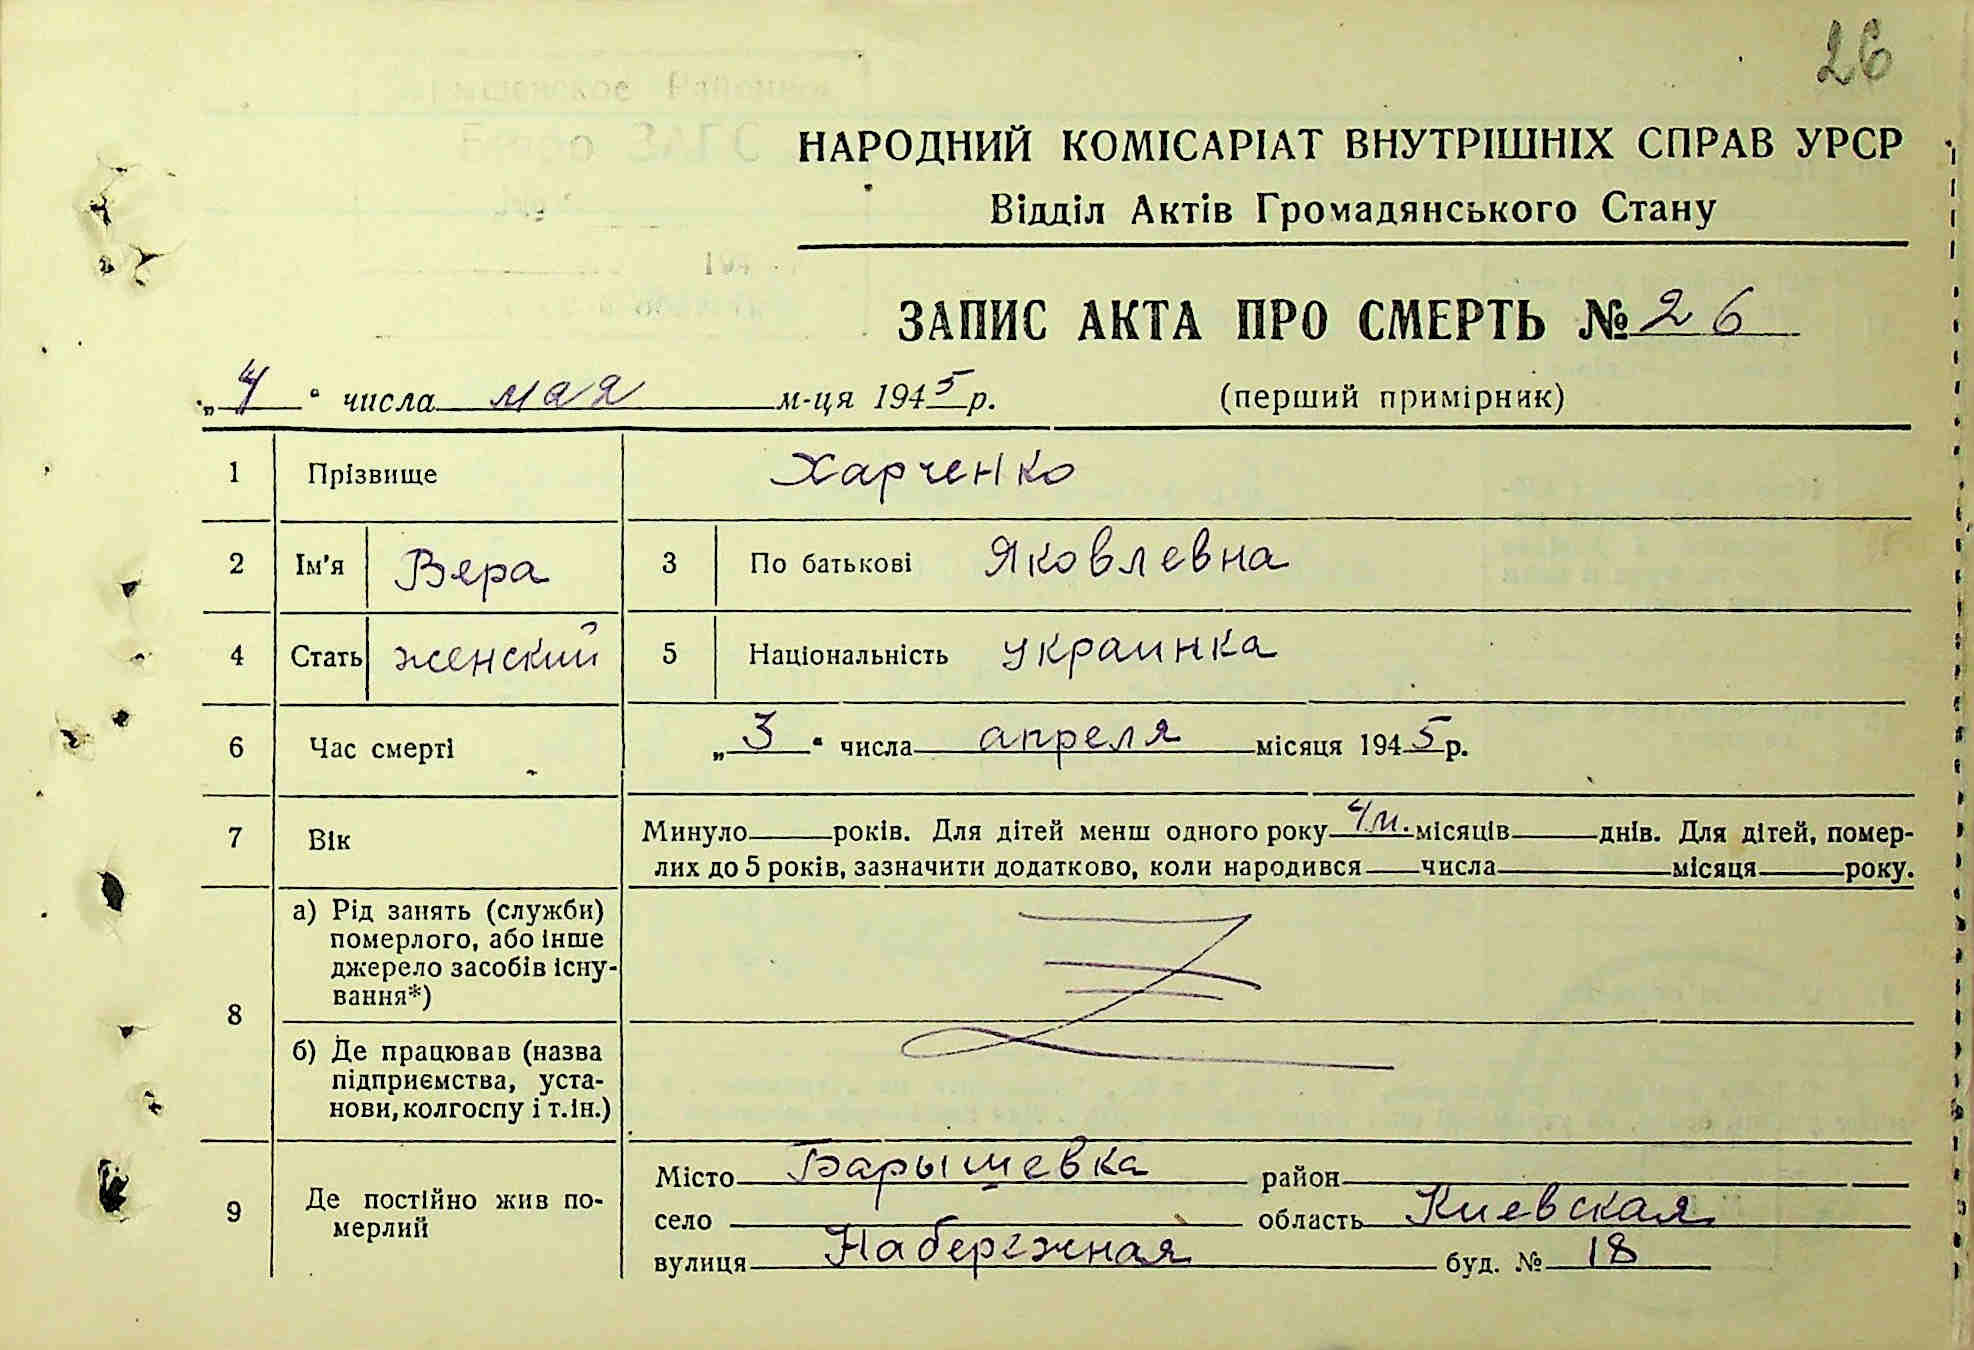 26
НАРОДНИЙ КОМІСАРІАТ ВНУТРІШНІХ СПРАВ УРСР
Відділ Актів Громадянського Стану
ЗАПИС АКТА ПРО СМЕРТЬ № 26
„4“ числа мая м-ця 1945 р. (перший примірник)
1 Прізвище Харченко
2 Ім'я Вера 3 По батькові Яковлевна
4 Стать женский 5 Національність украинка
6 Час смерті „3“ числа апреля місяця 1945 р.
7 Вік Минуло років. Для дітей менш одного року 4 м. місяців днів. Для дітей, помер-
лих до 5 років, зазначити додатково, коли народився числа місяця року.
8 а) Рід занять (служби)
померлого, або інше
джерело засобів існу-
вання*)
б) Де працював (назва
підприємства, уста-
нови, колгоспу і т.ін.)
9 Де постійно жив по-
мерлий
Місто Барышевка район
село область Киевская
вулиця Набережная буд. № 18